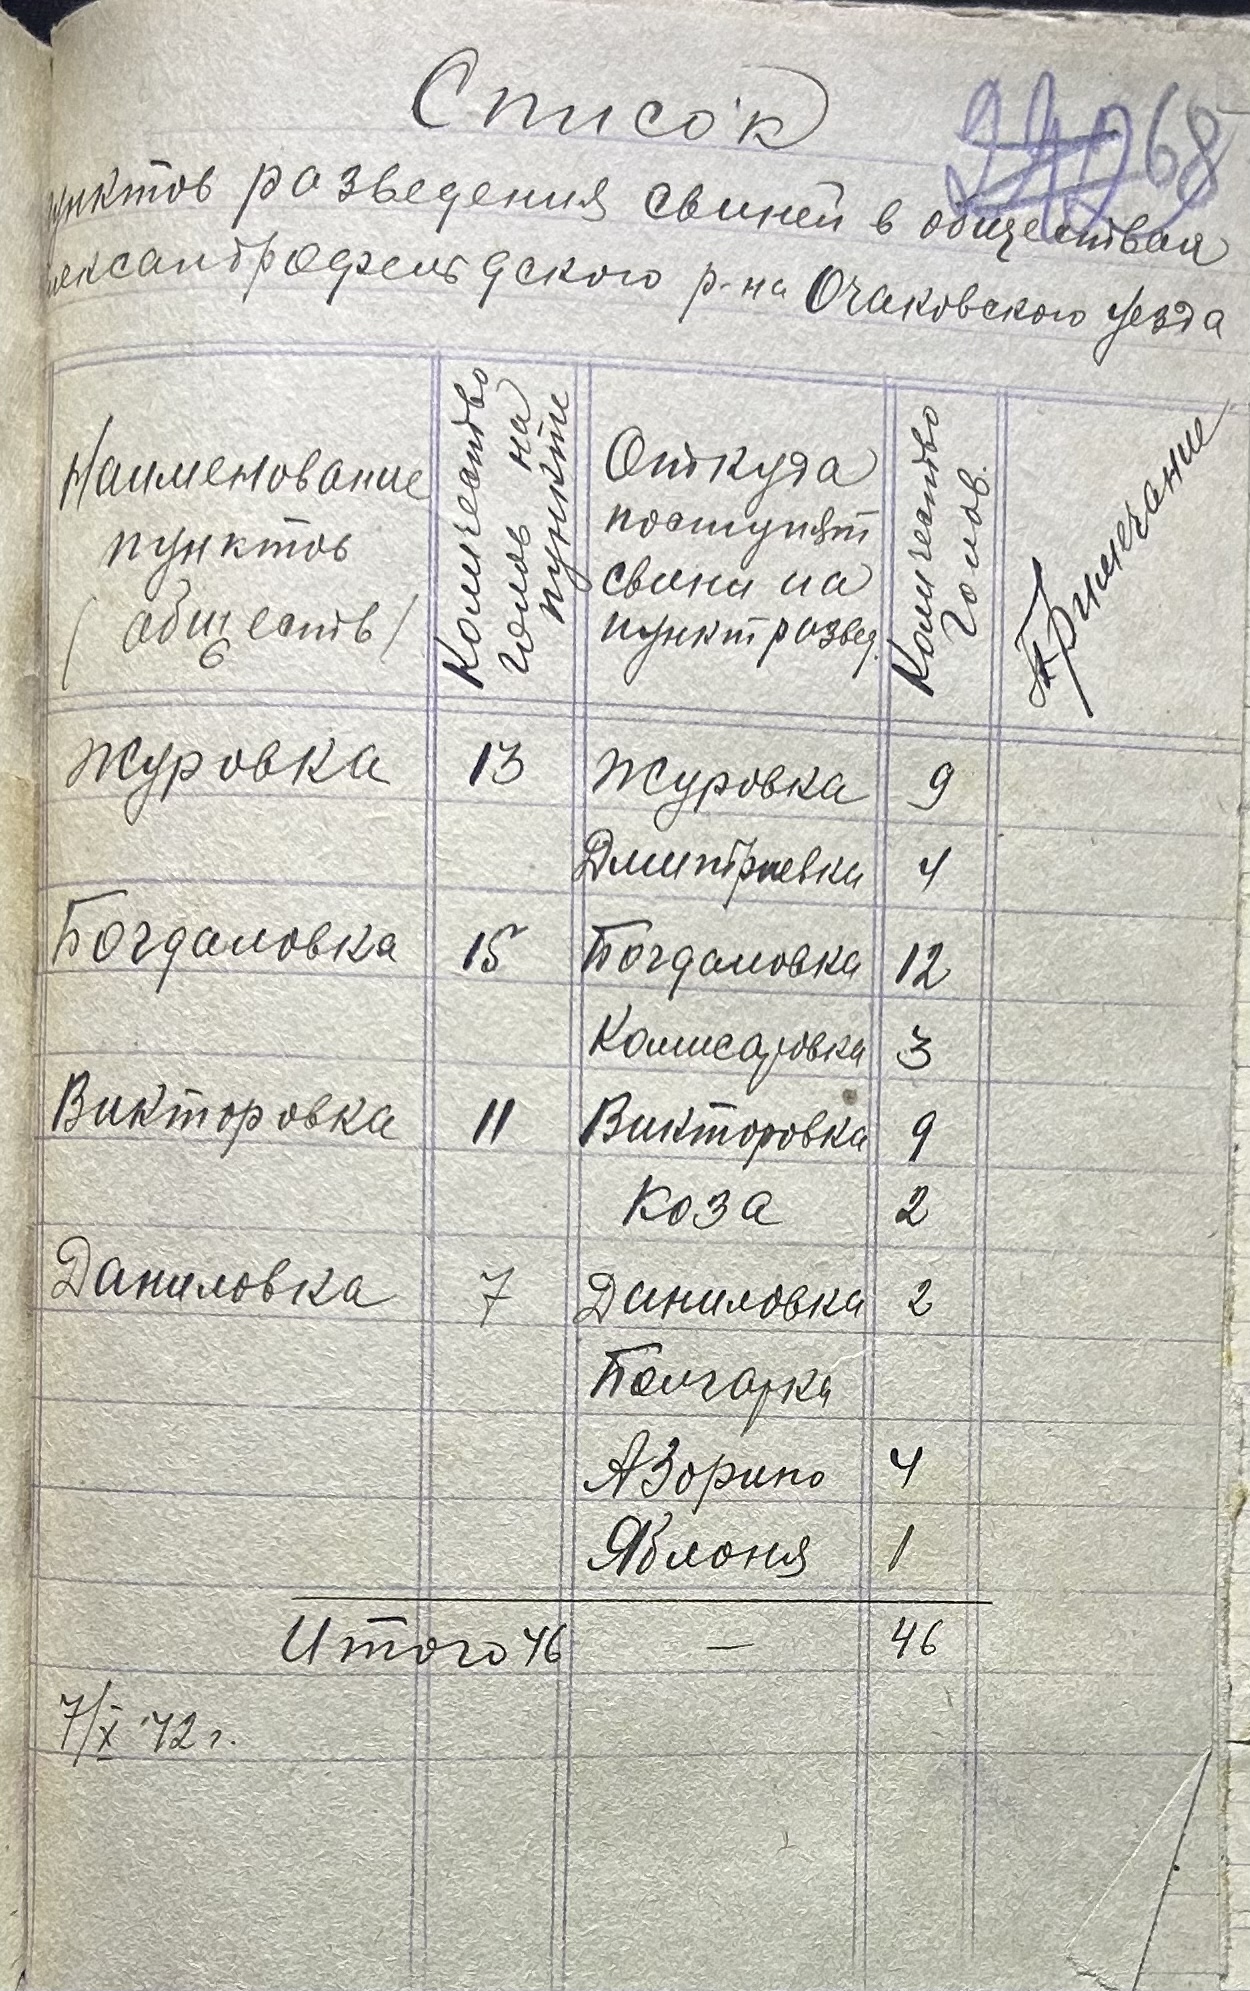 Список
68
пунктов разведения свиней в обществах
Александрофельдского р-на Очаковского уезда
Наименование
пунктов
( обществ )
Количество
голов на
пункте
Откуда
поступят
свини на
пункт развед.
Количество
голов.
Примечание
Журовка 13 Журовка 9
Дмитриевка 4
Богдановка 15 Богдановка 12
Комисаровка 3
Викторовка 11 Викторовка 9
Коза 2
Даниловка 7 Даниловка 2
Болгарка
Азорино 4
Яблоня 1
Итого 46 — 46
7/X 42 г.